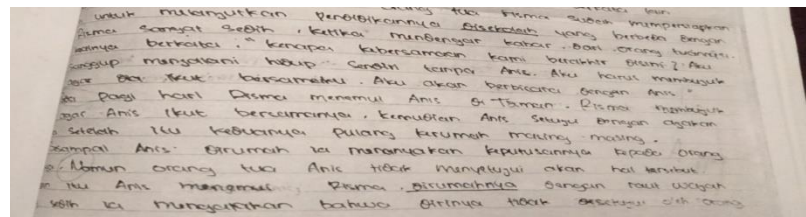 untuk melanjutkan pendidikannya disekolah yang berbeda dengan
Disma sangat sedih, ketika mendengar kabar dari orang tuanya.
berkata, "kenapa kebersamaan kami berakhir disini? Aku
sanggup menjalani hidup sendiri tanpa Anis. Aku harus membujuk
agar dia ikut bersamaku. Aku akan berbicara dengan Anis."
Pagi hari Disma menemui Anis di Taman. Disma membujuk
agar Anis ikut bersamanya. kemudian Anis setuju dengan ajakan
setelah itu keduanya pulang kerumah masing-masing.
sampai Anis dirumah ia menanyakan keputusannya kepada orang
Namun orang tua Anis tidak menyetujui akan hal tersebut.
itu Anis menemui Disma dirumahnya dengan raut wajah
sedih ia mengatakan bahwa dirinya tidak disetujui oleh orang